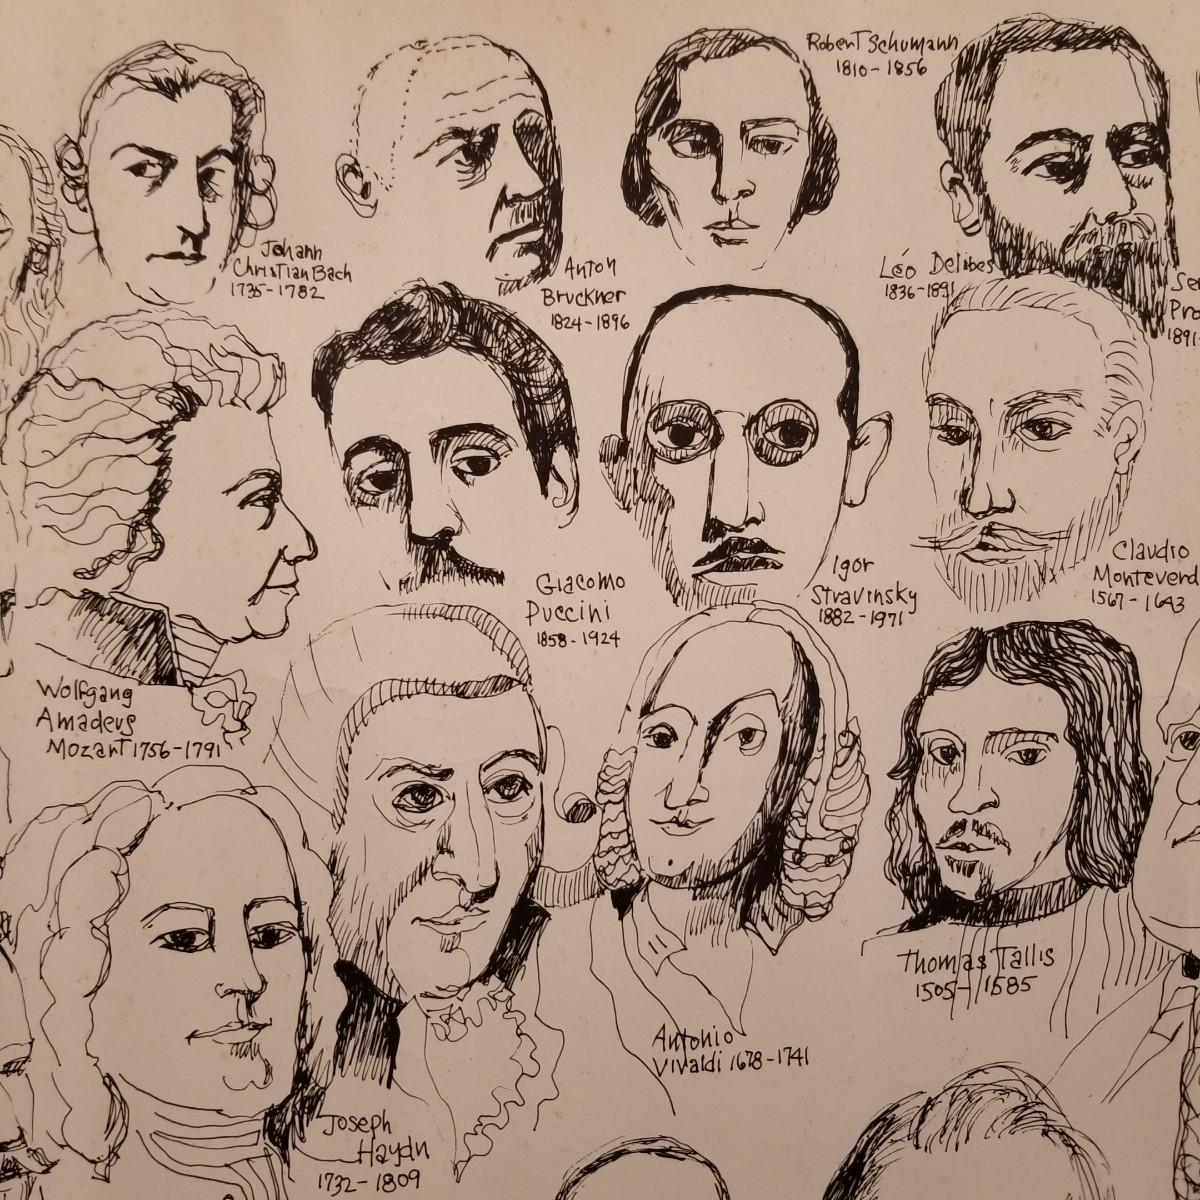 Robert Schumann
1810-1856
Johann
Christian Bach
1735-1782
Anton
Bruckner
1824-1896
Léo Delibes
1836-1891
Ser
Pro
1891-
Giacomo
Puccini
1858-1924
Igor
Stravinsky
1882-1971
Claudio
Monteverd
1567-1643
Wolfgang
Amadeus
Mozart 1756-1791
Thomas Tallis
1505-1585
Antonio
Vivaldi 1678-1741
Joseph
Haydn
1732-1809